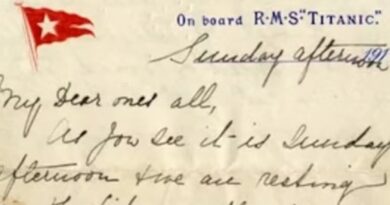 On board R·M·S·"TITANIC."
Sunday afternoon 191
My Dear ones all,
As you see it is Sunday
afternoon & we are resting